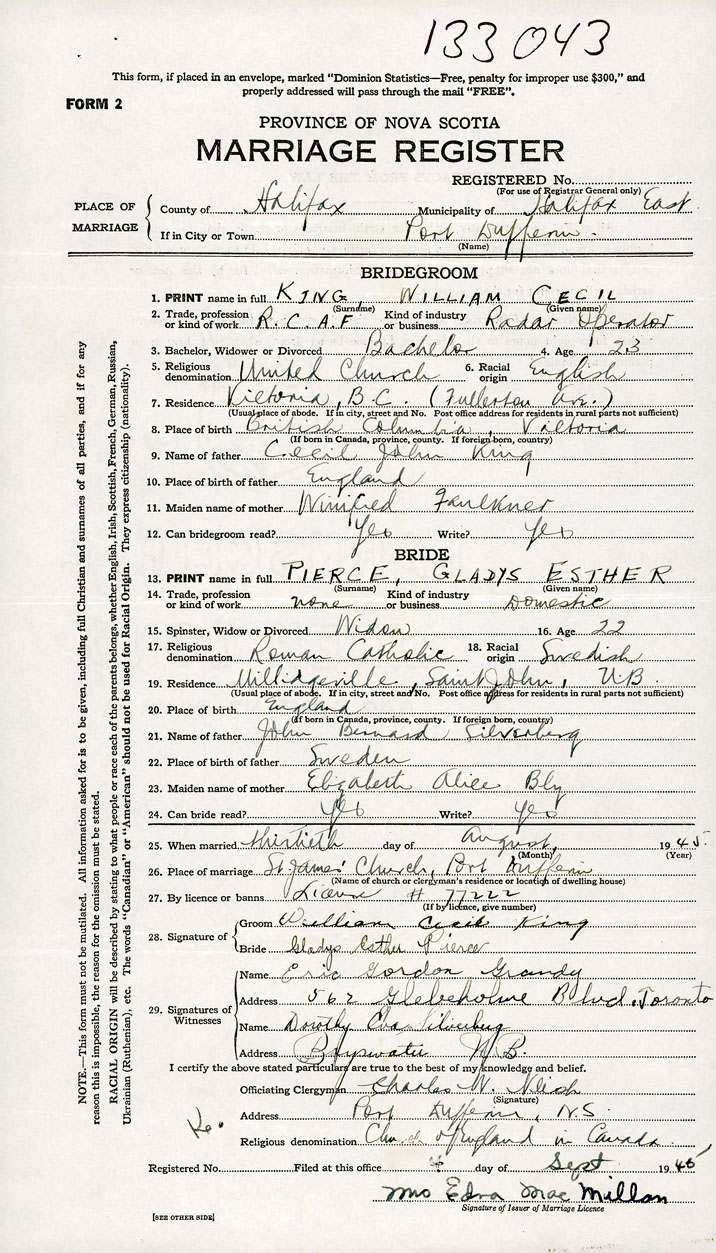 133043
This form, if placed in an envelope, marked "Dominion Statistics—Free, penalty for improper use $300," and
properly addressed will pass through the mail "FREE".
FORM 2
PROVINCE OF NOVA SCOTIA
MARRIAGE REGISTER
REGISTERED No.
(For use of Registrar General only)
PLACE OF MARRIAGE
County of Halifax Municipality of Halifax East
If in City or Town Port Dufferin.
(Name)
BRIDEGROOM
1. PRINT name in full KING, WILLIAM CECIL
(Surname) (Given name)
2. Trade, profession or kind of work R.C.A.F Kind of industry or business Radar Operator
3. Bachelor, Widower or Divorced Bachelor 4. Age 23
5. Religious denomination United Church 6. Racial origin English
7. Residence Victoria, B.C. (Fullerton Ave.)
(Usual place of abode. If in city, street and No. Post office address for residents in rural parts not sufficient)
8. Place of birth British Columbia, Victoria
(If born in Canada, province, county. If foreign born, country)
9. Name of father Cecil John King
10. Place of birth of father England
11. Maiden name of mother Winifred Faulkner
12. Can bridegroom read? Yes Write? Yes
BRIDE
13. PRINT name in full PIERCE, GLADYS ESTHER
(Surname) (Given name)
14. Trade, profession or kind of work none Kind of industry or business Domestic
15. Spinster, Widow or Divorced Widow 16. Age 22
17. Religious denomination Roman Catholic 18. Racial origin Swedish
19. Residence Millidgeville, Saint John, N.B
(Usual place of abode. If in city, street and No. Post office address for residents in rural parts not sufficient)
20. Place of birth England
(If born in Canada, province, county. If foreign born, country)
21. Name of father John Bernard Silverberg
22. Place of birth of father Sweden
23. Maiden name of mother Elizabeth Alice Bly
24. Can bride read? Yes Write? Yes
25. When married thirtieth day of August, 1945.
(Month) (Year)
26. Place of marriage St. James' Church, Port Dufferin
(Name of church or clergyman's residence or location of dwelling house)
27. By licence or banns # 77222
(If by licence, give number)
28. Signature of
Groom William Cecil King
Bride Gladys Esther Pierce
29. Signatures of Witnesses
Name Eric Gordon Grandy
Address 562 Glebeholme Blvd. Toronto
Name Dorothy Eva Silverberg
Address Bayswater N.B.
I certify the above stated particulars are true to the best of my knowledge and belief.
Officiating Clergyman Charles W.
(Signature)
Address Port Dufferin, N.S.
Religious denomination Church of England in Canada
Registered No. Filed at this office day of Sept 1945
Mrs Edna MacMillan
Signature of Issuer of Marriage Licence
[SEE OTHER SIDE]
NOTE.—This form must not be mutilated. All information asked for is to be given, including full Christian and surnames of all parties, and if for any
reason this is impossible, the reason for the omission must be stated.
RACIAL ORIGIN will be described by stating to what people or race each of the parents belongs, whether English, Irish, Scottish, French, German Russian,
Ukrainian (Ruthenian), etc. The words "Canadian" or "American" should not be used for Racial Origin. They express citizenship (nationality).